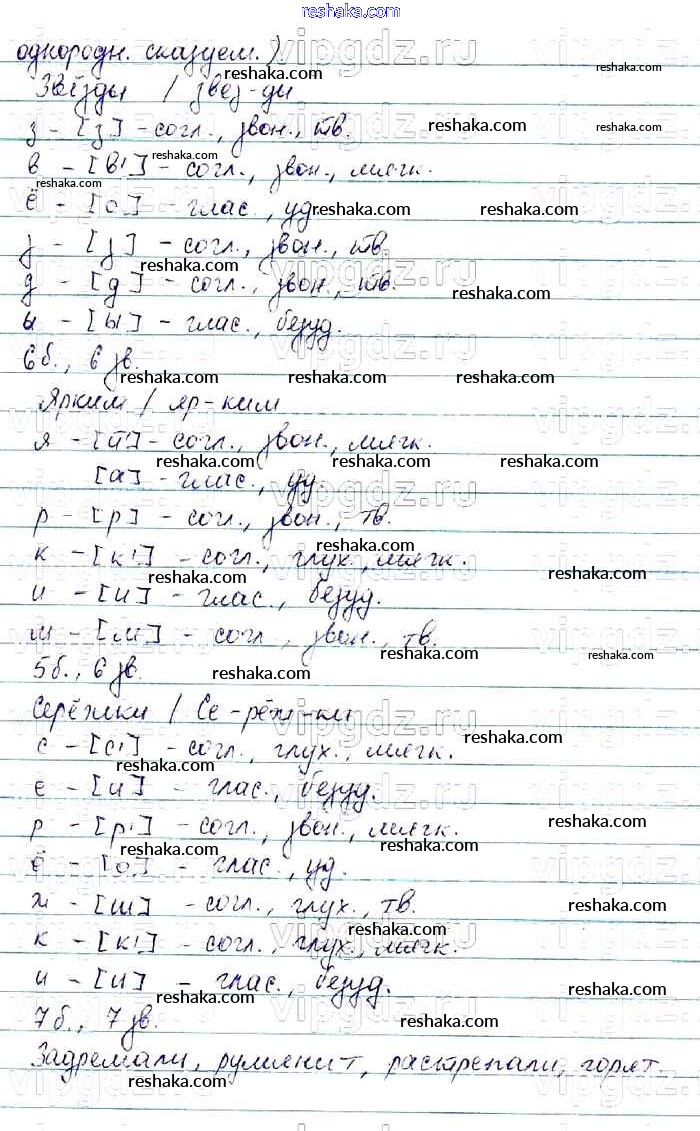 reshaka.com
однородн. сказуем.)
Звёзды / звёз-ды
з - [з] - согл., звон., тв.
в - [в'] - согл., звон., мягк.
ё - [о] - глас., уд.
з - [з] - согл., звон., тв.
д - [д] - согл., звон., тв.
ы - [ы] - глас., безуд.
6 б., 6 зв.
Ярким / яр-ким
я - [й'] - согл., звон., мягк.
[а] - глас., уд.
р - [р] - согл., звон., тв.
к - [к'] - согл., глух., мягк.
и - [и] - глас., безуд.
м - [м] - согл., звон., тв.
5 б., 6 зв.
Серёжки / Се-рёж-ки
с - [с'] - согл., глух., мягк.
е - [и] - глас., безуд.
р - [р'] - согл., звон., мягк.
ё - [о] - глас., уд.
ж - [ш] - согл., глух., тв.
к - [к'] - согл., глух., мягк.
и - [и] - глас., безуд.
7 б., 7 зв.
Задремали, румянит, растрепали, горят.
reshaka.com